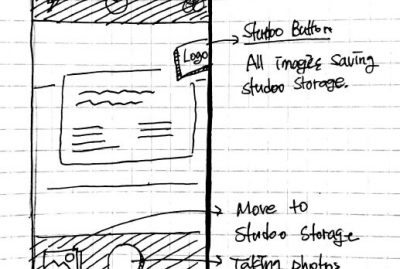 Logo
Studoo Button
All Images Saving
studoo Storage.
Move to
Studoo Storage
Taking photos